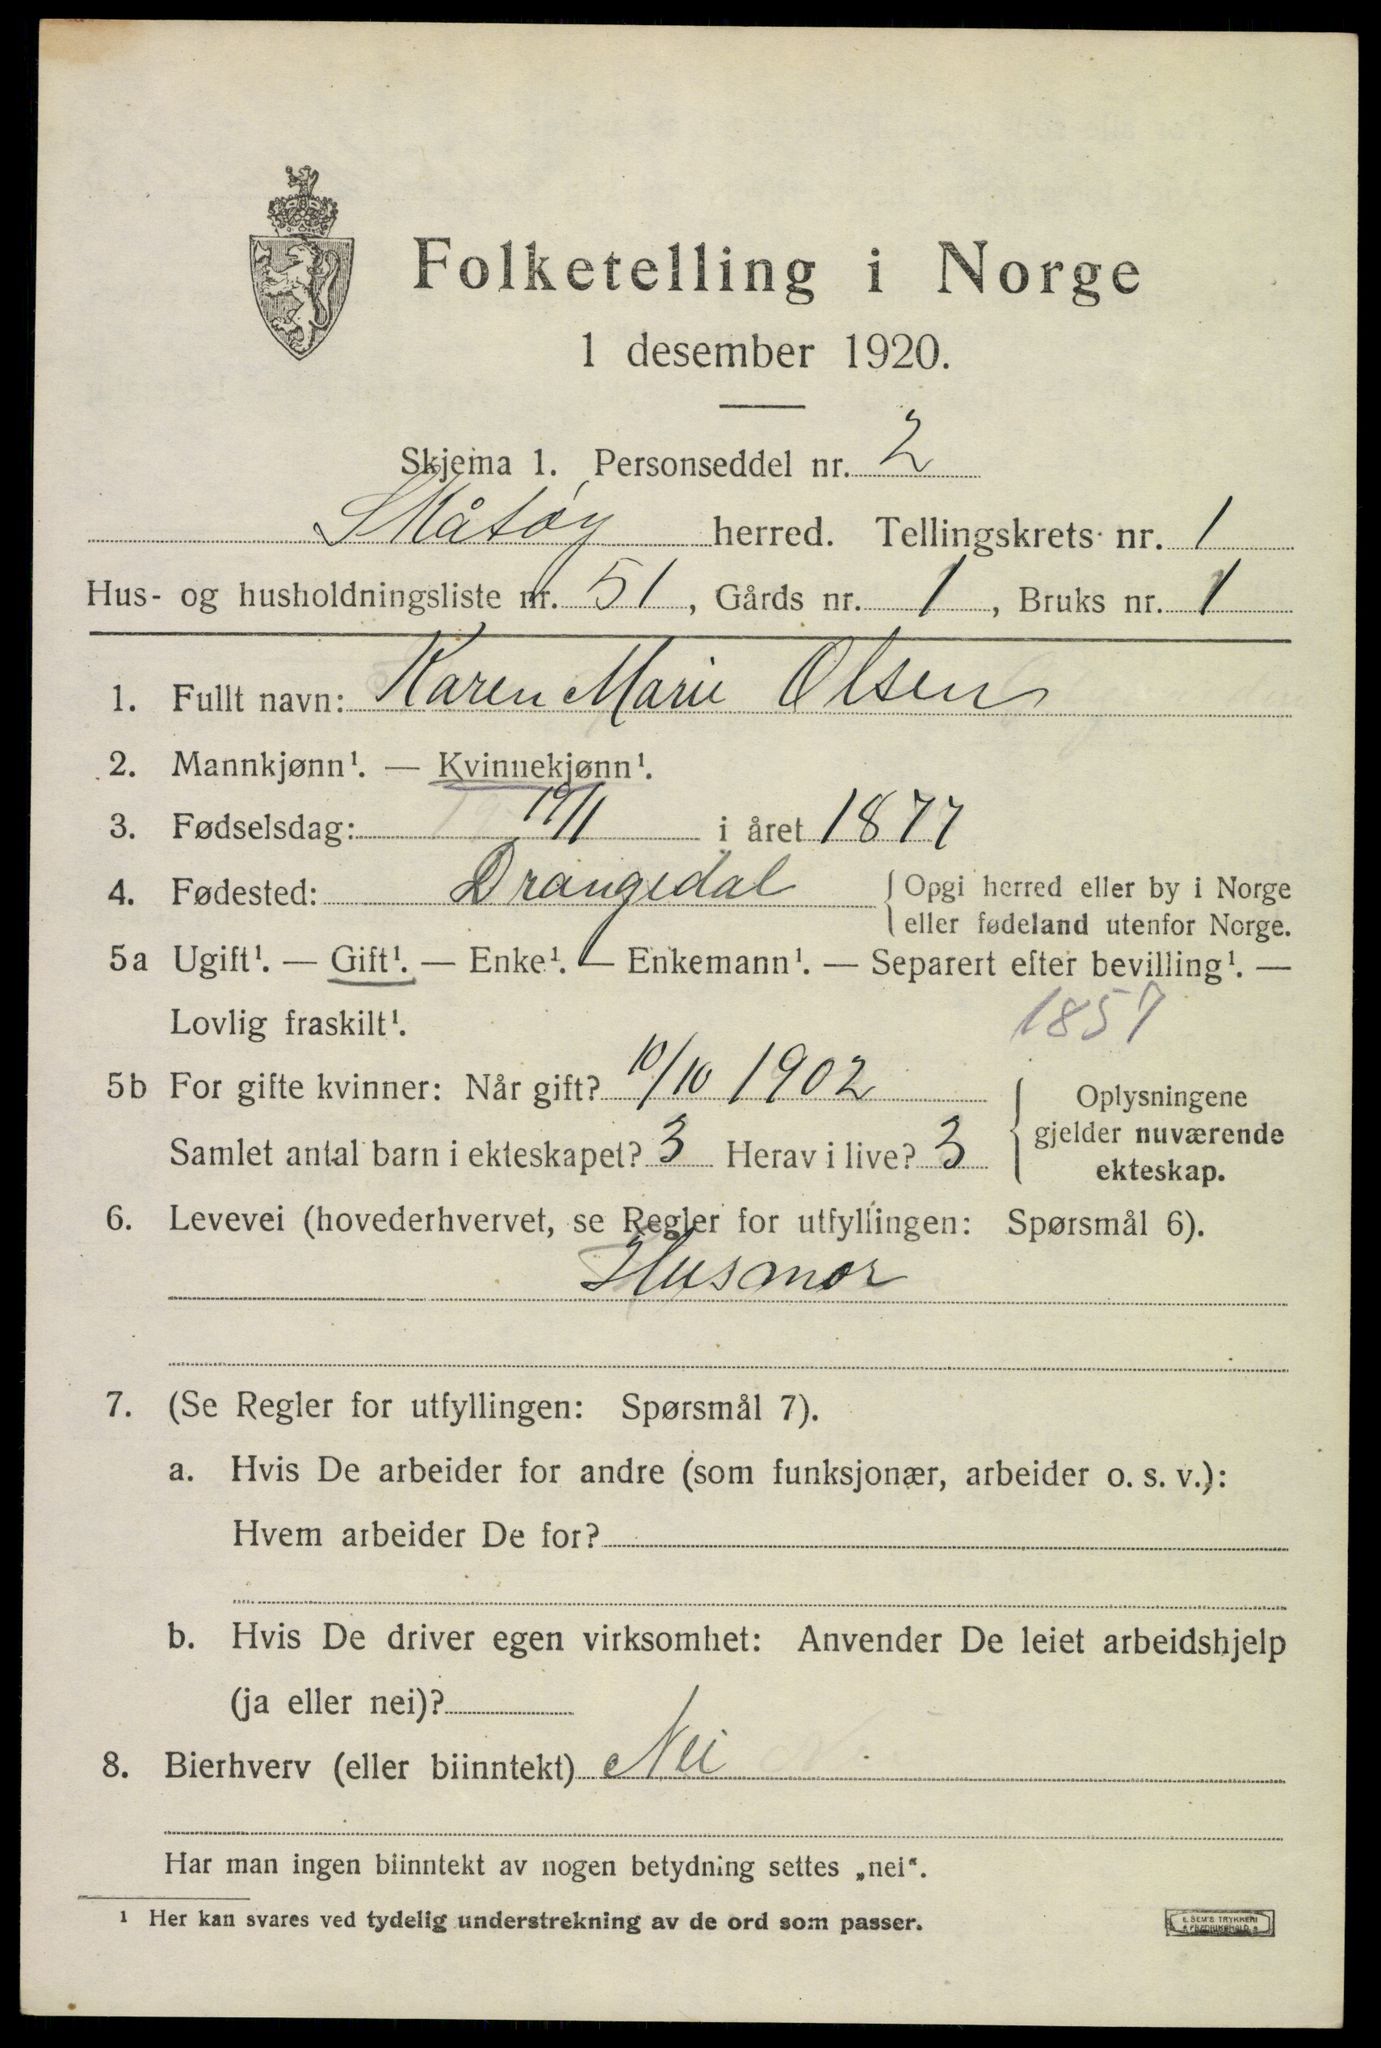 Folketelling i Norge
1 desember 1920.
Skjema 1. Personseddel nr. 2
Skåtøy herred. Tellingskrets nr. 1
Hus- og husholdningsliste nr. 51, Gårds nr. 1, Bruks nr. 1
1. Fullt navn: Karen Marie Olsen
2. Mannkjønn¹. — Kvinnekjønn¹.
3. Fødselsdag: 19/1 i året 1877
4. Fødested: Drangedal { Opgi herred eller by i Norge
eller fødeland utenfor Norge.
5a Ugift¹. — Gift¹. — Enke¹. — Enkemann¹. — Separert efter bevilling¹. —
Lovlig fraskilt¹. 1857
5b For gifte kvinner: Når gift? 10/10 1902 { Oplysningene
gjelder nuværende
Samlet antal barn i ekteskapet? 3 Herav i live? 3 ekteskap.
6. Levevei (hovederhvervet, se Regler for utfyllingen: Spørsmål 6).
Husmor
7. (Se Regler for utfyllingen: Spørsmål 7).
a. Hvis De arbeider for andre (som funksjonær, arbeider o. s. v.):
Hvem arbeider De for?
b. Hvis De driver egen virksomhet: Anvender De leiet arbeidshjelp
(ja eller nei)?
8. Bierhverv (eller biinntekt) Nei
Har man ingen biinntekt av nogen betydning settes „nei“.
¹ Her kan svares ved tydelig understrekning av de ord som passer.
E. SEM'S TRYKKERI
FREDRIKSHALD